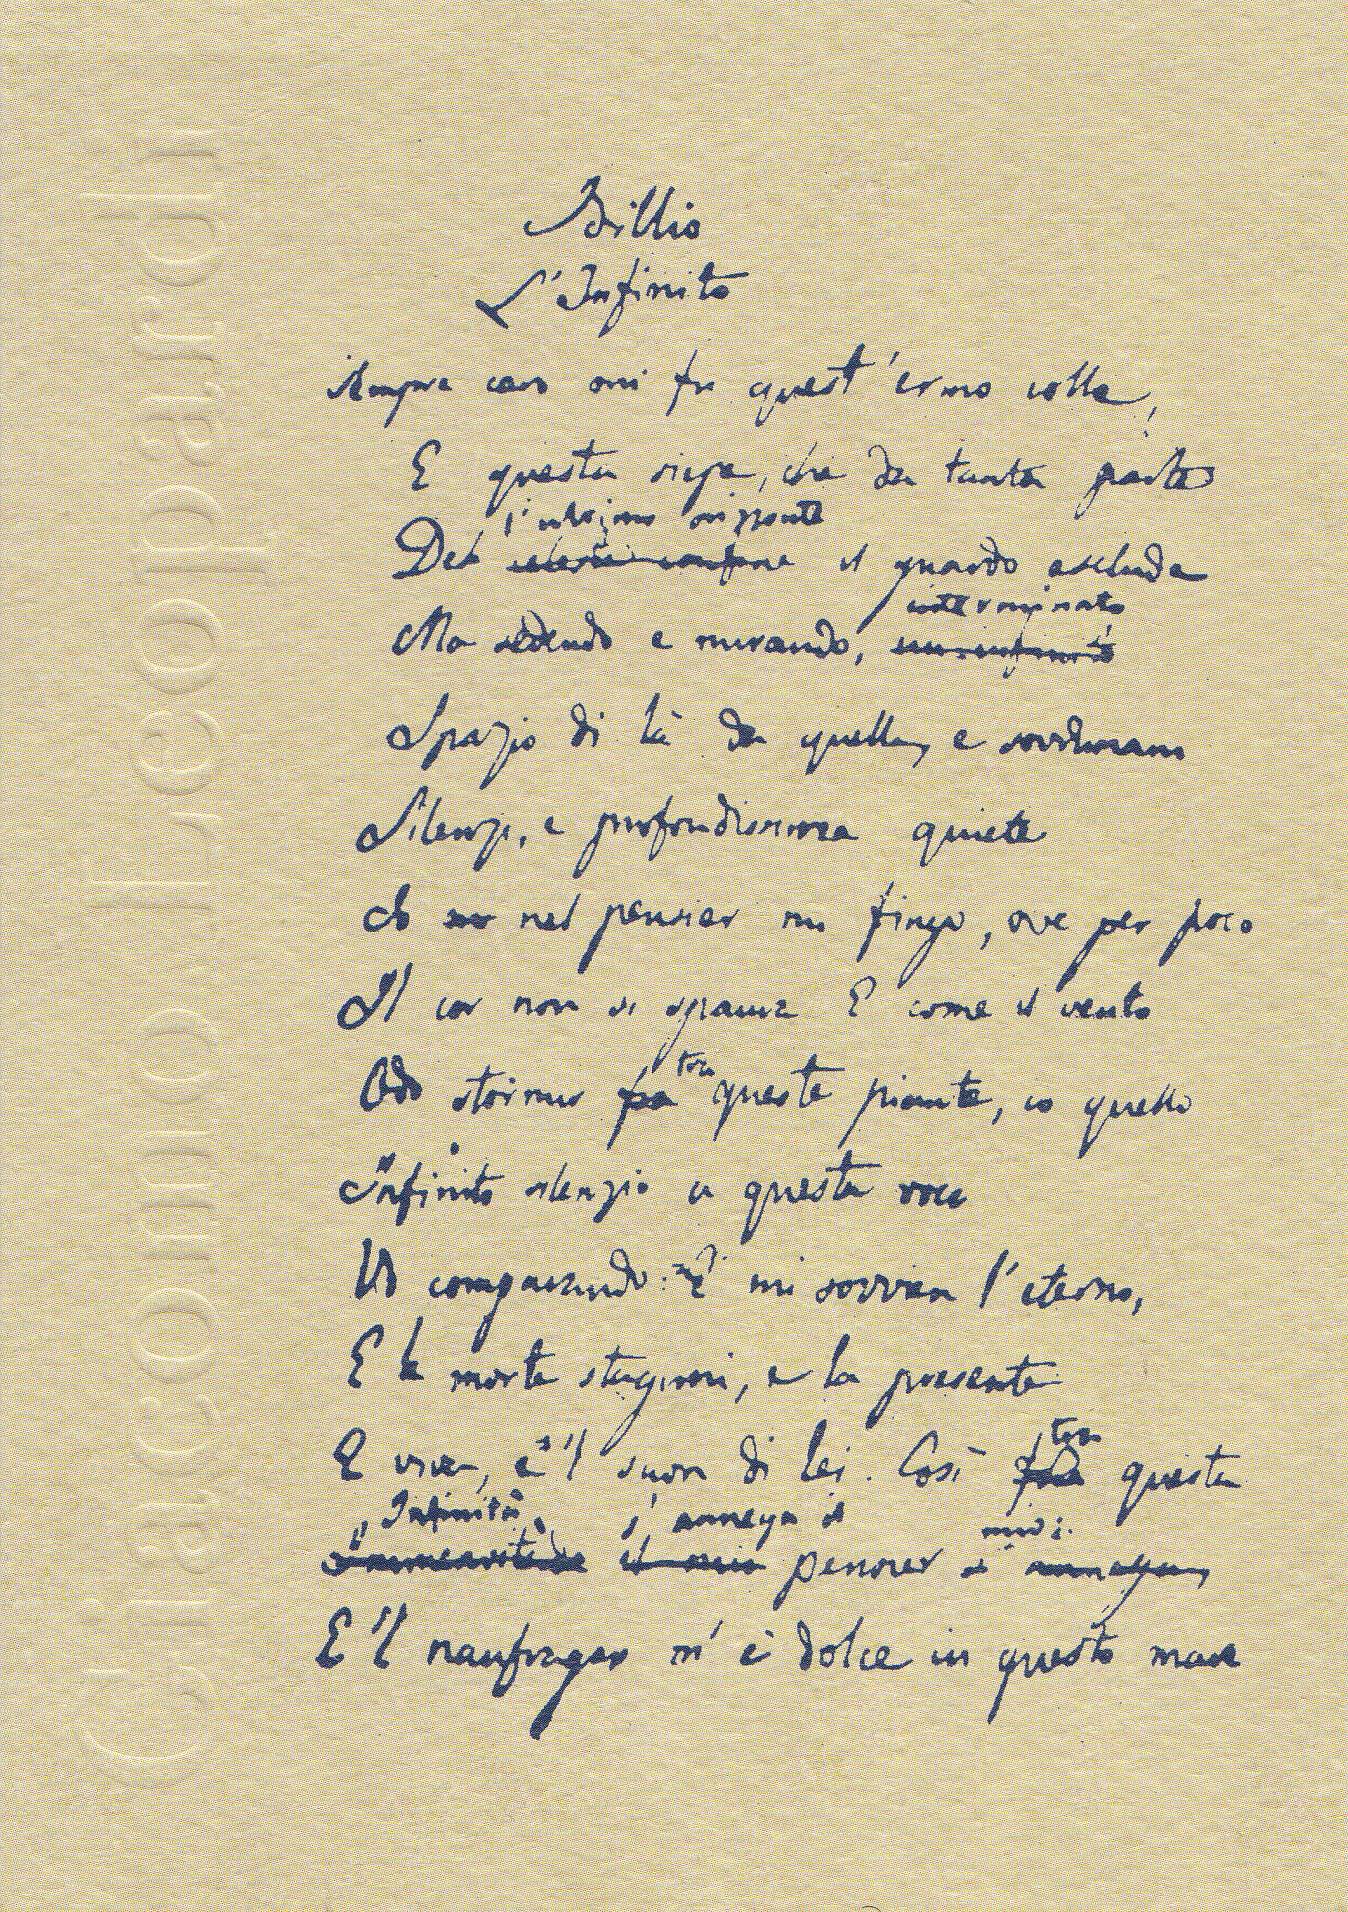 Giacomo Leopardi
Idillio
L'Infinito
Sempre caro mi fu quest'ermo colle,
E questa siepe, che da tanta parte
l'ultimo orizzonte
Del celeste confine il guardo esclude
interminato
Ma sedendo e mirando, un infinito
Spazio di là da quella, e sovrumani
Silenzi, e profondissima quiete
Io nel pensier mi fingo, ove per poco
Il cor non si spaura E come il vento
tra
Odo stormir fra queste piante, io quello
Infinito silenzio a questa voce
Vo comparando: E mi sovvien l'eterno,
E le morte stagioni, e la presente
tra
E viva, e 'l suon di lei. Così fra questa
Infinità s'annega il mio:
Immensitade il mio pensier s'annega,
E 'l naufragar m'è dolce in questo mare